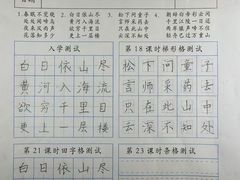 1.春眠不觉晓
处处闻啼鸟
夜来风雨声
花落知多少
2.白日依山尽
黄河入海流
欲穷千里目
更上一层楼
3.松下问童子
言师采药去
只在此山中
云深不知处
入学测试
白日依山尽
黄河入海流
欲穷千里目
更上一层楼
第18课时梯形格测试
松下问童子
言师采药去
只在此山中
云深不知处
第21课时田字格测试
白日依山尽
第23课时条格测试